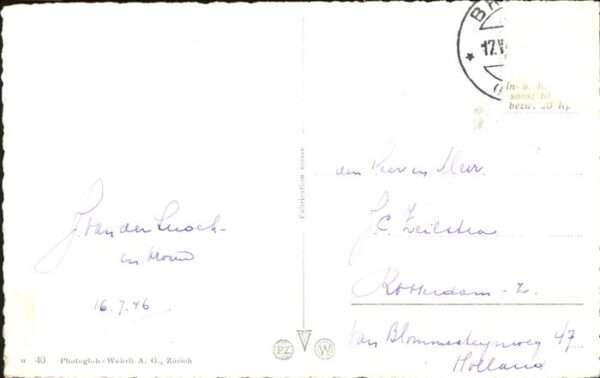 BR
17.V
In- u.
bezw. 20 Rp.
Fabrication suisse
den Heer en Mevr.
J. C. Zeilstra
Rotterdam - Z.
van Blommesteynweg 47
Holland
J. van der
en
16.7.46
40 Photoglob-Wehrli A. G., Zürich
PZ W